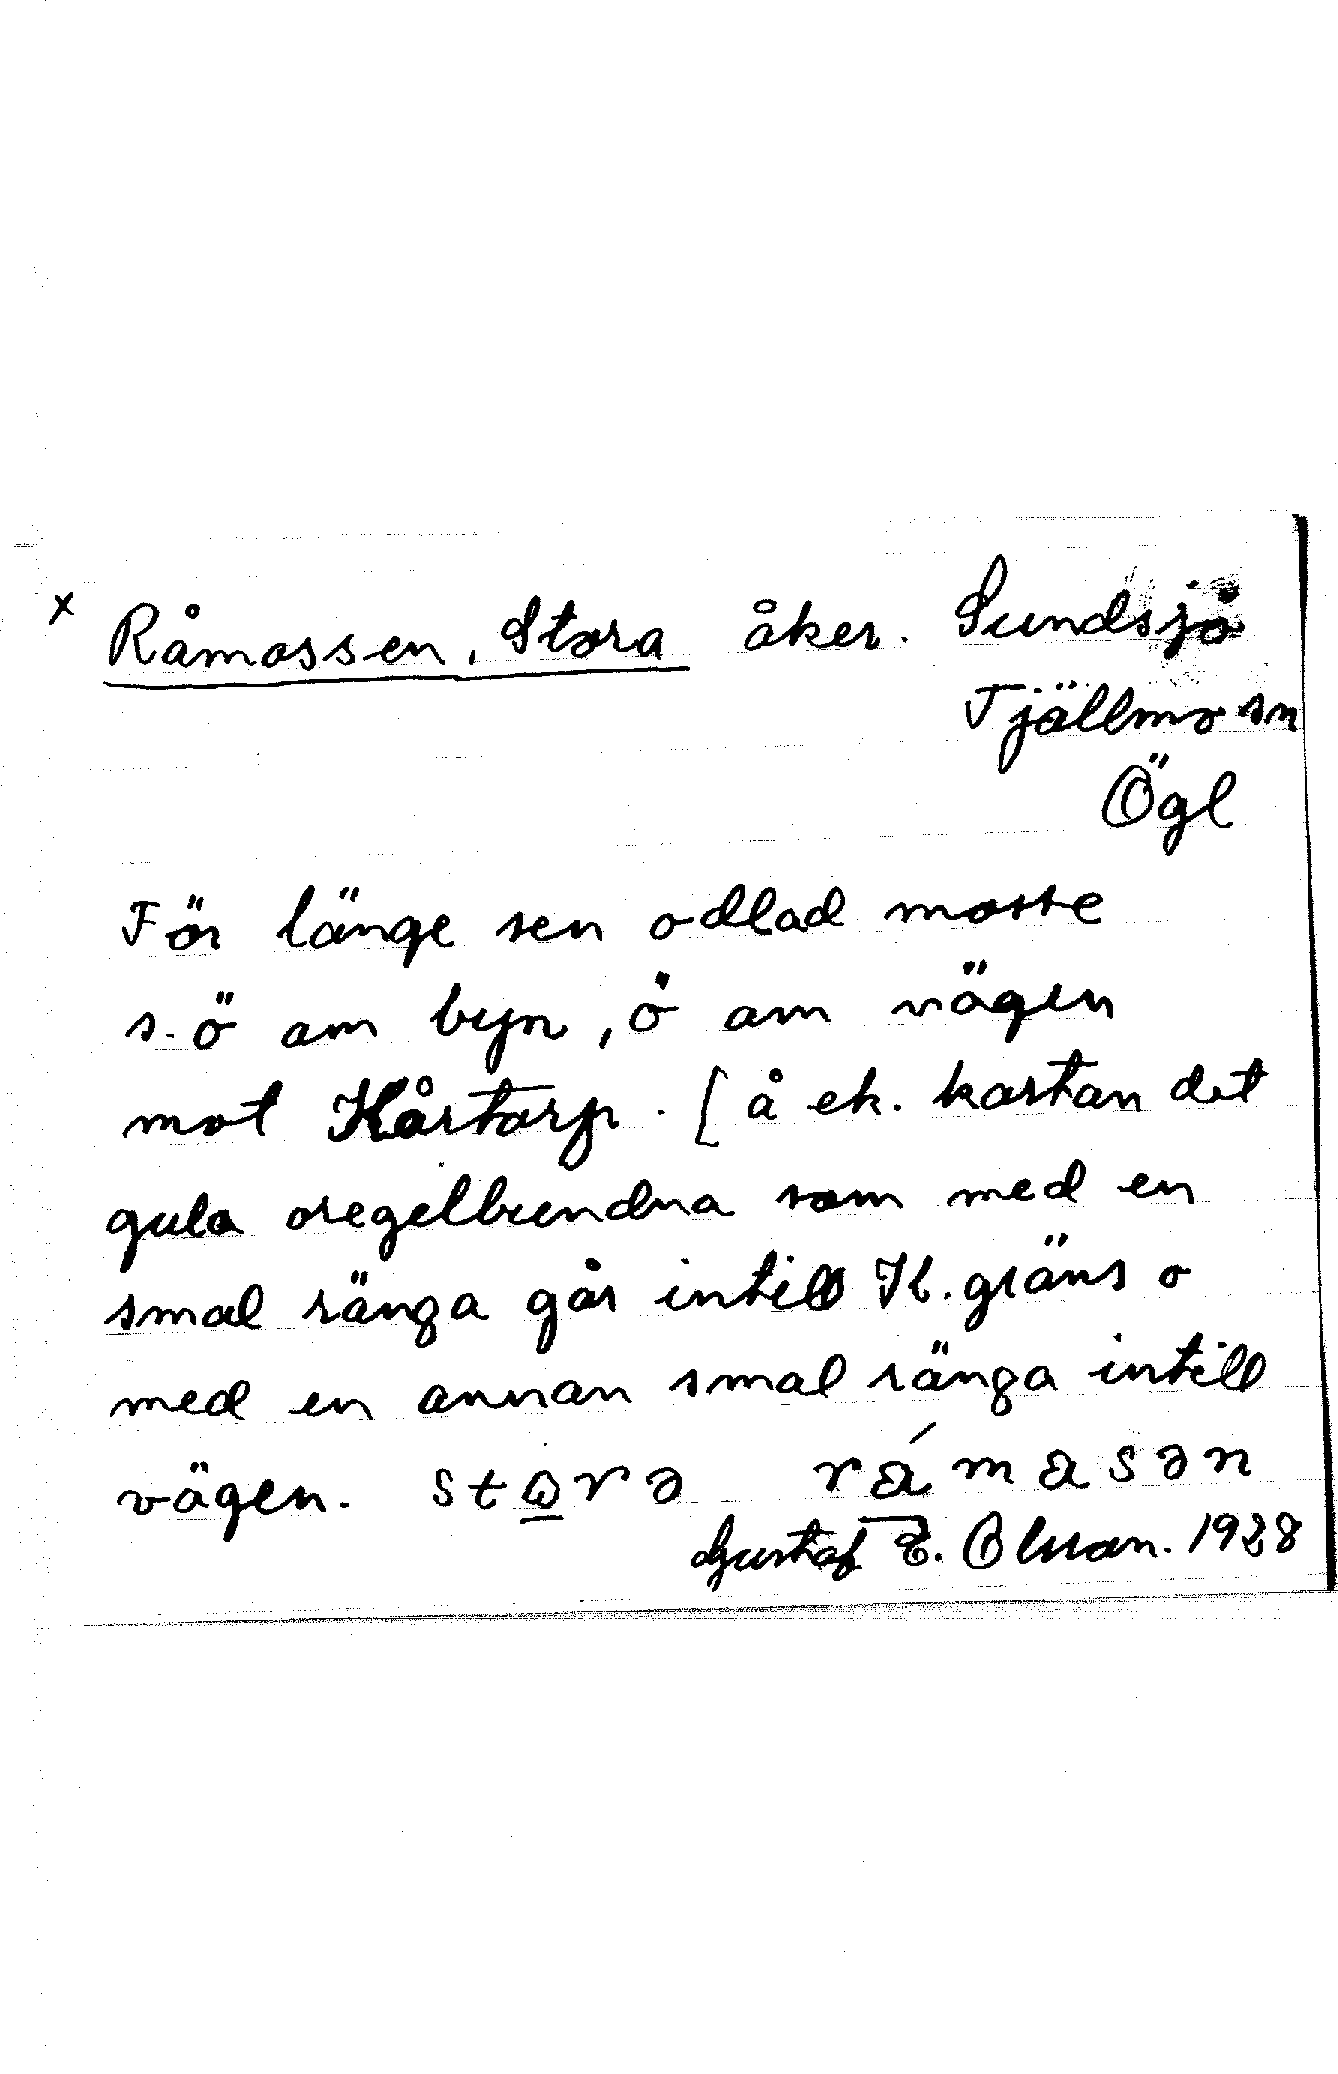 x Råmossen, Stora åker. Sundsjö
Tjällmo sn
Ögl
För länge sen odlad mosse
s.ö om byn, ö om vägen
mot Kårtorp. [å ek. kartan det
gula oregelbundna som med en
smal ränga går intill K. gräns o
med en annan smal ränga intill
vägen. stɷrə råmasən
Gustaf E. Olsson. 1928